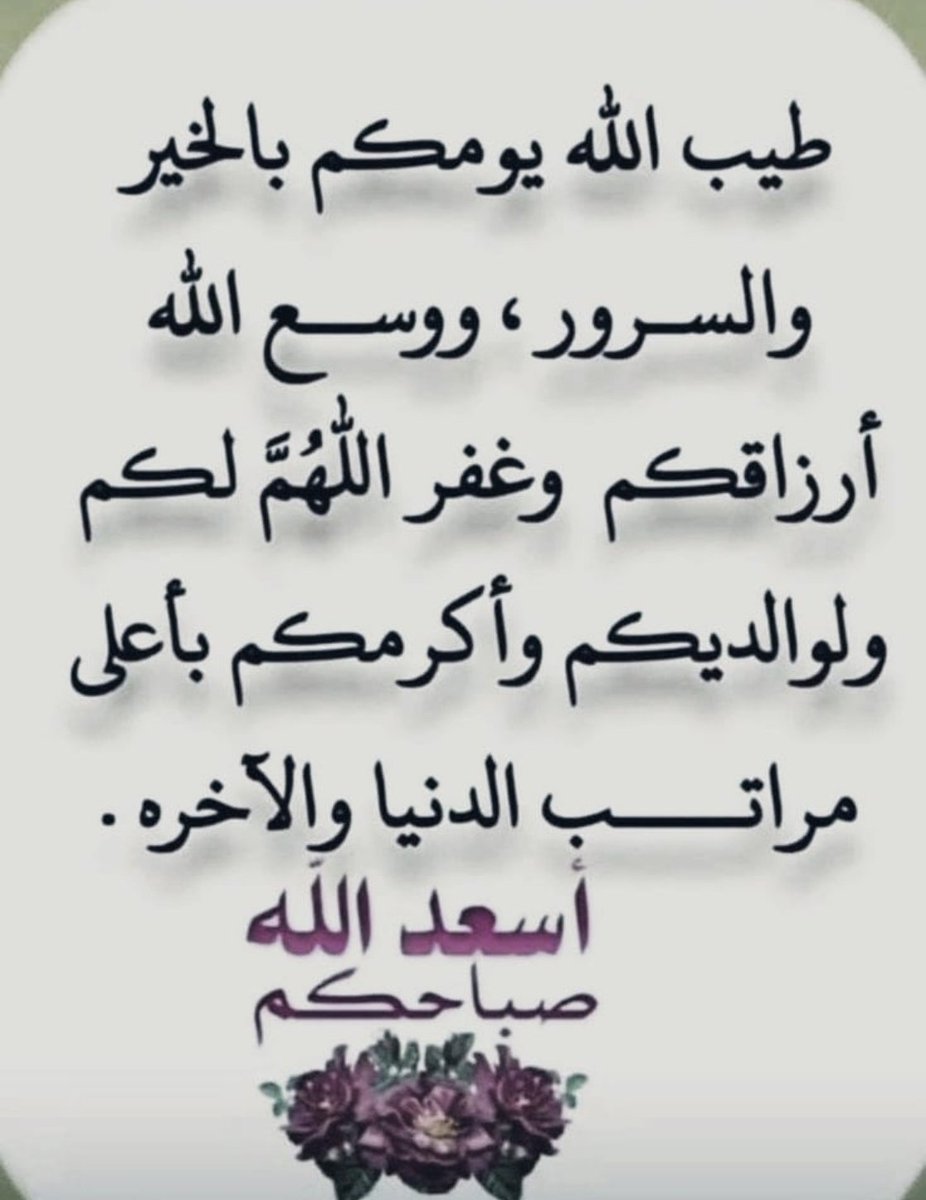 طيب الله يومكم بالخير
والسـرور ، ووسـع الله
أرزاقكم وغفر اللهُمَّ لكم
ولوالديكم وأكرمكم بأعلى
مراتـب الدنيا والآخره .
أسعد الله
صباحكم